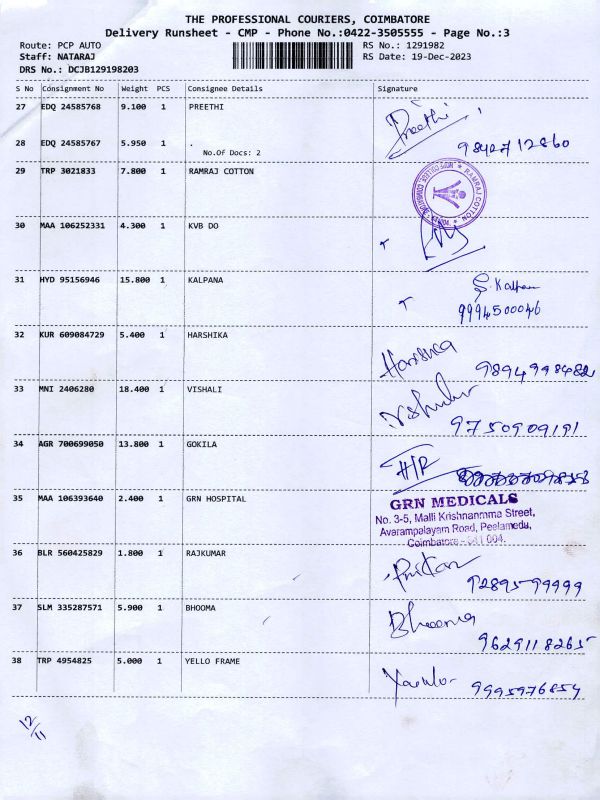 THE PROFESSIONAL COURIERS, COIMBATORE
Delivery Runsheet - CMP - Phone No.:0422-3505555 - Page No.:3
Route: PCP AUTO RS No.: 1291982
Staff: NATARAJ RS Date: 19-Dec-2023
DRS No.: DCJB129198203
S No Consignment No Weight PCS Consignee Details Signature
27 EDQ 24585768 9.100 1 PREETHI Preethi
28 EDQ 24585767 5.950 1 . 9842712860
No.Of Docs: 2
29 TRP 3021833 7.800 1 RAMRAJ COTTON RAMRAJ COTTON
30 MAA 106252331 4.300 1 KVB DO
31 HYD 95156946 15.800 1 KALPANA S. Kalpana
9994500046
32 KUR 609084729 5.400 1 HARSHIKA
9894998482
33 MNI 2406280 18.400 1 VISHALI
9750909191
34 AGR 700699050 13.800 1 GOKILA
35 MAA 106393640 2.400 1 GRN HOSPITAL GRN MEDICALS
No. 3-5, Malli Krishnanmma Street,
Avarampalayam Road, Peelamedu,
Coimbatore - 641 004.
36 BLR 560425829 1.800 1 RAJKUMAR
9289599999
37 SLM 335287571 5.900 1 BHOOMA Bhooma
9629118265
38 TRP 4954825 5.000 1 YELLO FRAME
9995976854
12/11